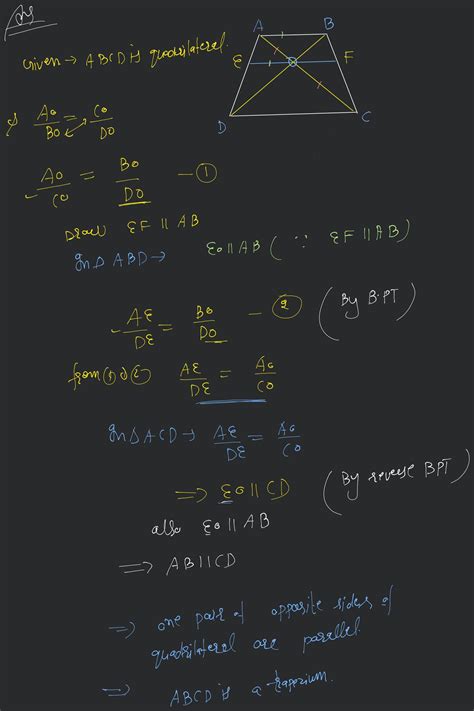 Ans
A B
Given → ABCD is quadrilateral.
E F
& AO/BO = CO/DO
D C
AO/CO = BO/DO — ①
Draw EF || AB
In Δ ABD → EO || AB ( ∵ EF || AB)
AE/DE = BO/DO — ② (By B.PT)
from ① & ② AE/DE = AO/CO
In Δ ACD → AE/DE = AO/CO
⇒ EO || CD (By reverse BPT)
also EO || AB
⇒ AB || CD
⇒ one pair of opposite sides of
quadrilateral are parallel.
⇒ ABCD is a trapezium.